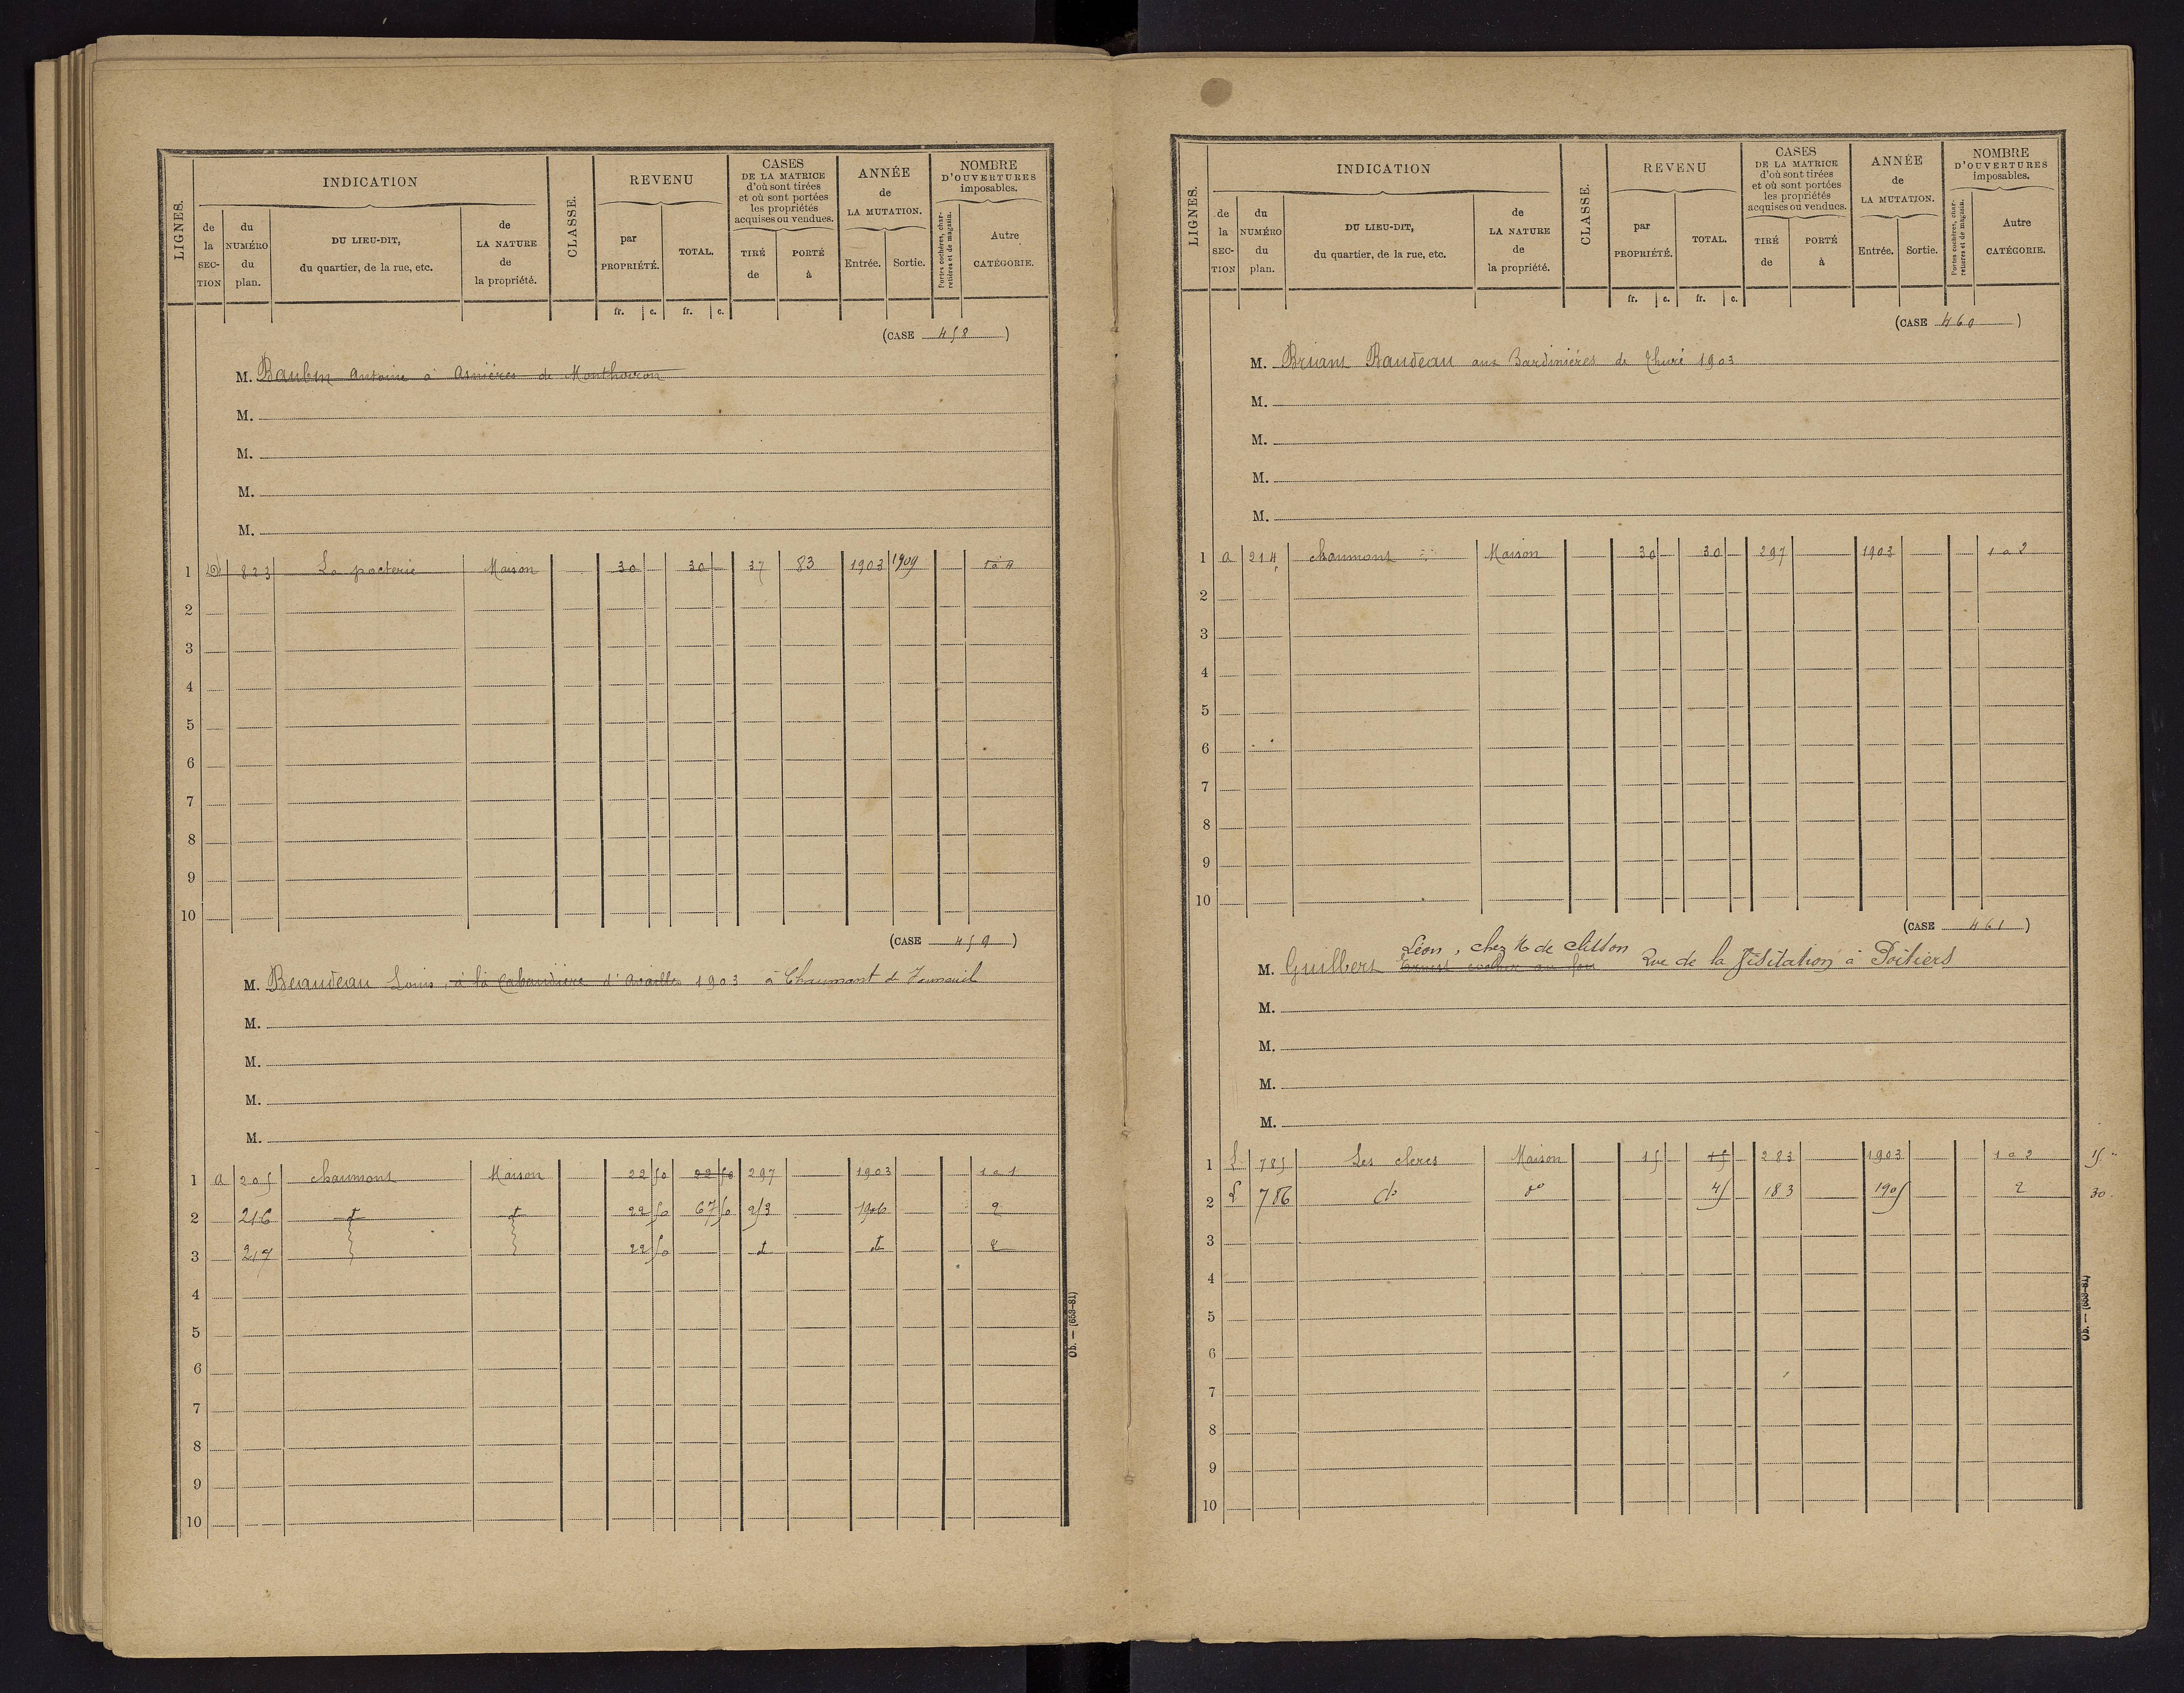 LIGNES. INDICATION CLASSE. REVENU CASES DE LA MATRICE d'où sont tirées et où sont portées les propriétés acquises ou vendues. ANNÉE de LA MUTATION. NOMBRE D'OUVERTURES imposables.
de la SECTION du NUMÉRO du plan. DU LIEU-DIT, du quartier, de la rue, etc. de LA NATURE de la propriété. par PROPRIÉTÉ. TOTAL. TIRÉ de PORTÉ à Entrée. Sortie. Portes cochères, charretières et de magasin. Autre CATÉGORIE.
fr. c. fr. c.
(CASE 458)
M. Baubin Antoine à Asnières de Monthoiron
M.
M.
M.
M.
1 D 823 La pacterie Maison 30 30 37 83 1903 1909 1 à 4
2
3
4
5
6
7
8
9
10
(CASE 459)
M. Beaudeau Louis, à la Cabaudière d'availles 1903 à Chaumont de
M.
M.
M.
M.
1 a 205 chaumont Maison 22 50 22 50 297 1903 1 a 1
2 216 d d 22 50 67 50 253 1906 2
3 217 22 50 d d 2
4
5
6
7
8
9
10
Ob. — (653-81)
LIGNES. INDICATION CLASSE. REVENU CASES DE LA MATRICE d'où sont tirées et où sont portées les propriétés acquises ou vendues. ANNÉE de LA MUTATION. NOMBRE D'OUVERTURES imposables.
de la SECTION du NUMÉRO du plan. DU LIEU-DIT, du quartier, de la rue, etc. de LA NATURE de la propriété. par PROPRIÉTÉ. TOTAL. TIRÉ de PORTÉ à Entrée. Sortie. Portes cochères, charretières et de magasin. Autre CATÉGORIE.
fr. c. fr. c.
(CASE 460)
M. Briant Raudeau aux Bardinières de Thuré 1903
M.
M.
M.
M.
1 a 214 chaumont Maison 30 30 297 1903 1 a 2
2
3
4
5
6
7
8
9
10
(CASE 461)
Léon, chez M de Clisson
M. Guilbert Ernest Rue de la Visitation à Poitiers
M.
M.
M.
M.
1 785 Les cleres Maison 15 15 283 1903 1 a 2 15 "
2 786 do do 45 183 1905 2 30 .
3
4
5
6
7
8
9
10
Ob. — (653-81)